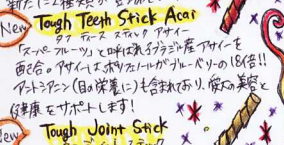 新たに2種類が
New Tough Teeth Stick Acai
タフ ティース スティック アサイー
「スーパーフルーツ」と呼ばれるブラジル産アサイーを
配合。アサイーはポリフェノールがブルーベリーの18倍!!
アントシアニン(目の栄養に)も含まれており、愛犬の美容と
健康をサポートします!
New Tough Joint Stick